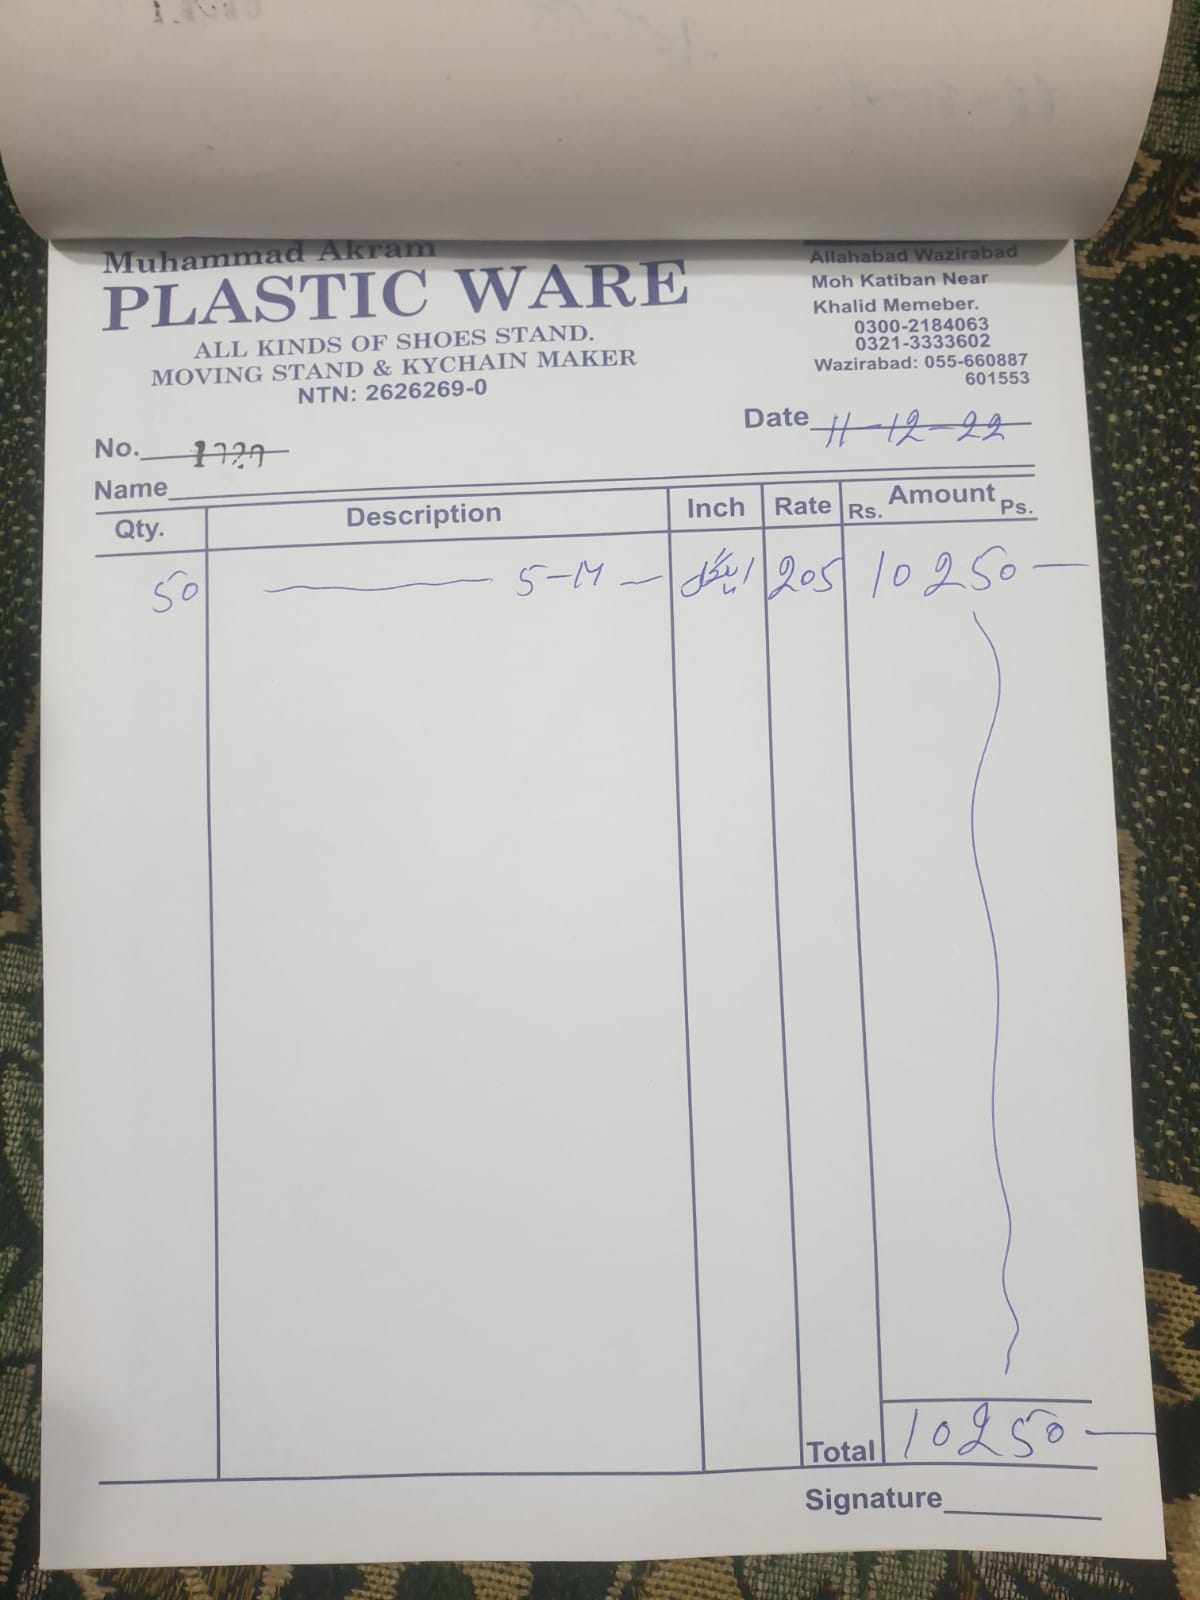 Muhammad Akram
PLASTIC WARE
ALL KINDS OF SHOES STAND.
MOVING STAND & KYCHAIN MAKER
NTN: 2626269-0
Allahabad Wazirabad
Moh Katiban Near
Khalid Memeber.
0300-2184063
0321-3333602
Wazirabad: 055-660887
601553
No. 1729
Date 11-12-22
Name
Qty. Description Inch Rate Rs. Amount Ps.
50 5-M 205 10250
Total 10250
Signature